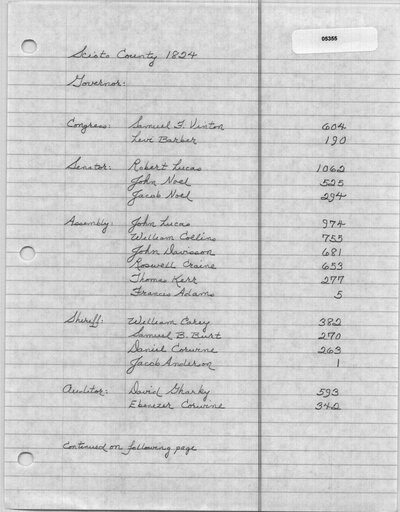 05355
Scioto County 1824
Governor:
Congress: Samuel F. Vinton 604
Levi Barber 190
Senator: Robert Lucas 1062
John Noel 525
Jacob Noel 294
Assembly: John Lucas 974
William Collins 755
John Davisson 681
Roswell Craine 653
Thomas Kerr 277
Francis Adams 5
Sheriff: William Carey 382
Samuel B. Burt 270
Daniel Corwine 263
Jacob Anderson 1
Auditor: David Gharky 593
Ebenezer Corwine 342
Continued on following page